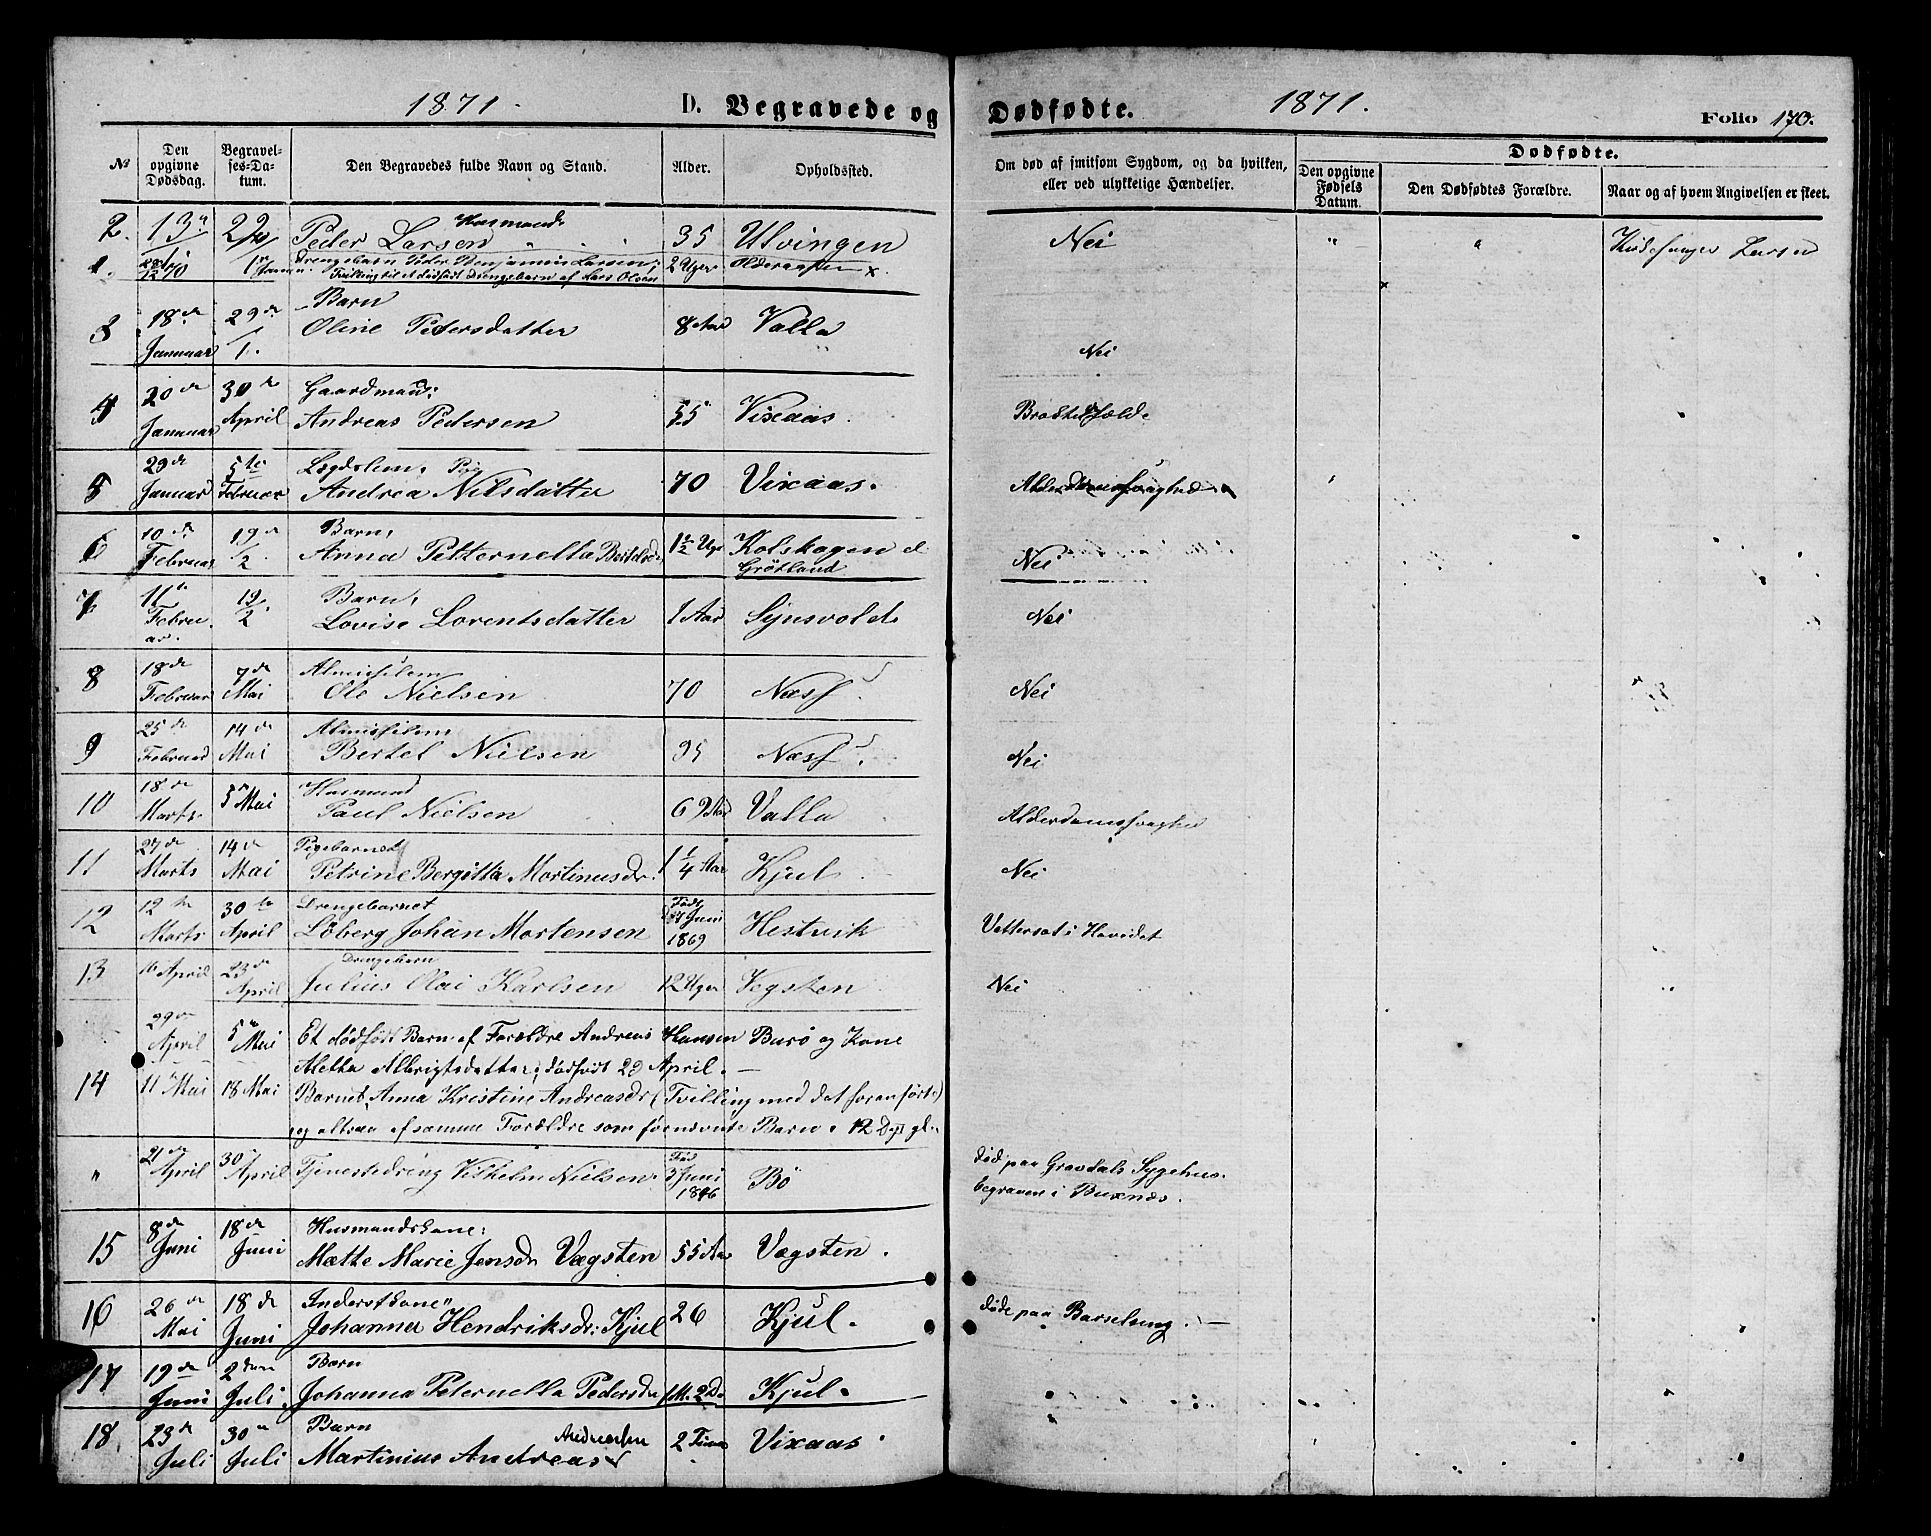 1871. D. Begravede og Dødfødte. 1871. Folio 170.
№ Den opgivne Dødsdag. Begravelses-Datum. Den Begravedes fulde Navn og Stand. Alder. Opholdssted. Om død af smitsom Sygdom, og da hvilken, eller ved ulykkelige Hændelser. Dødfødte.
Den opgivne Fødsels Datum. Den Dødfødtes Forældre. Naar og af hvem Angivelsen er skeet.
Husmand
2. 13 22/2 Peder Larsen 35 Ulvingen Nei " " Larsen
1. 70 1 Drengebarn Peder Benjamin Larsen, 2 Uger x.
Tvilling til et dødfødt Drengebarn af Lars Olsen
Barn
3 18de Januar 29de 1. Oline Pedersdatter 8 Aar Valla Nei
Gaardmand:
4 20de Januar 30te April Andreas Pedersen 55 Vixaas.
Lægdslem, Pige
5 29de Januar 5te Februar Andrea Nilsdatter 70 Vixaas. Alderdomssvaghed
Barn,
6 10de Februar 19de /2. Anna Petternella 1 1/2 Uge Kolskogen
Grøtland Nei
Barn,
7 11te Februar. 19/2 Lovise Lorentsdatter 1 Aar Nei
Almisselem
8 18de Februar 7de Mai Ole Nielsen 70 Næss. Nei
Almisselem
9 25de Februar 14de Mai Bertel Nielsen 95 Næss. Nei
Husmand
10 18de Marts 5 Mai Paul Nielsen 69 Aar Valla Alderdomssvaghed
Pigebarnet
11 27de Marts 14de Mai Petrine Bergitta Martinusdr. 1 1/4 Aar Kjul Nei
Drengebarnet
12 12te Marts 30te April Løberg Johan Mortensen Født Juni 1869 Hestvik i Hovedet
Drengebarn
13 16 April 23de April Julius Olai Karlsen 12 Uger Vegsten Nei
29de April 5 Mai Et dødfødt Barn af Forældre Andreas Hansen Burø og Kone
Aletta Albrigtsdatter; dødfødt 29 April. —
14 11 Mai 18 Mai Barnet Anna Kristine Andreasdr (Tvilling med det foranførte)
og altsaa af samme Forældre som Barn. 12 Dage gl.
" 21de April 30 April Tjenestedreng Vilhelm Nielsen Født 3 Juni Bø død paa Gravdals Sygehus.
begraven i Buxnæs.
Husmandskone:
15 8de Juni 18de Juni Mætte Marie Jensdr Vægsten 55 Aar Vægsten.
Inderstkone"
16 26de Mai 18de Juni Johanna Hendriksdr: Kjul 26 Kjul. døde paa Barselseng. —
Barn
17 19de Juni 2den Juli. Johanna Peternella Pedersdr 1 M. 2 D. Kjul.
Barn
18. 23de Juli 30 Juli Martinius Andreas Andreassen 2 Timer Vixaas